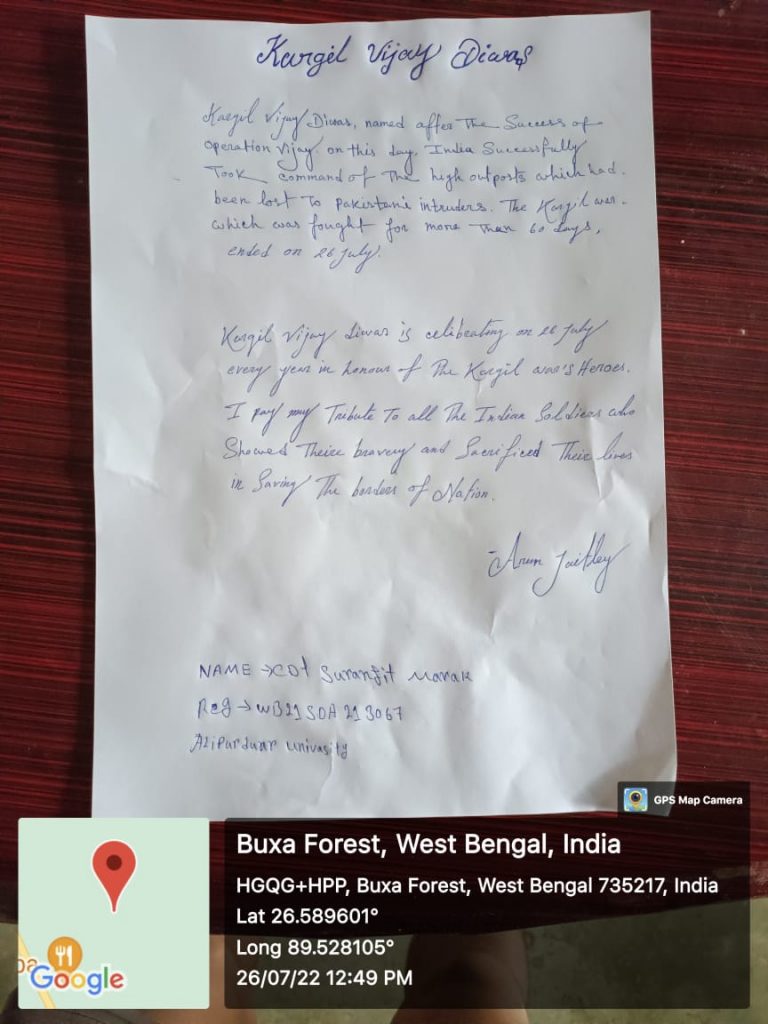 Kargil Vijay Diwas
Kargil Vijay Diwas, named after The Success of
Operation Vijay. on this day, India Successfully
Took command of The high outposts which had
been lost To Pakistani intruders. The Kargil war.
which was fought for more Than 60 days,
ended on 26 July.
Kargil Vijay Diwas is celibrating on 26 July
every year in honour of The Kargil war's Heroes.
I pay my Tribute To all The Indian Soldiers who
Showed Theire bravery and Sacrificed Their lives
in Saving The borders of Nation.
- Arun Jaitley
NAME → CDT Suranjit Marak
Reg → WB21SDA213067
Alipurduar Univasity
GPS Map Camera
Buxa Forest, West Bengal, India
HGQG+HPP, Buxa Forest, West Bengal 735217, India
Lat 26.589601°
Long 89.528105°
26/07/22 12:49 PM
Google